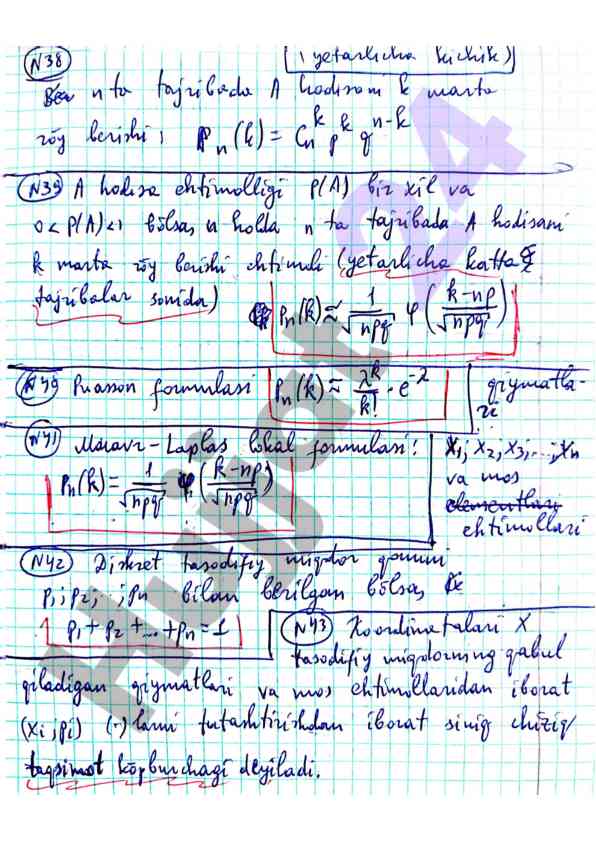 N38 (yetarlicha kichik)
n ta tajribada A hodisani k marta
röy berishi; Pn(k) = C_n^k p^k q^{n-k}
N39 A hodisa ehtimolligi p(A) bir xil va
0<P(A)<1 bölsa, u holda n ta tajribada A hodisani
k marta röy berishi ehtimoli (yetarlicha katta
tajribalar sonida) Pn(k) ≈ 1/√npq φ((k-np)/√npq)
N40 Puasson formulasi Pn(k) ≈ λ^k/k! · e^{-λ}
N41 Muavr-Laplas lokal formulasi:
Pn(k) = 1/√npq φ((k-np)/√npq)
qiymatla-
ri
x1; x2, x3; ...; xn
va mos
elementlari
ehtimollari
N42 Diskret tasodifiy miqdor qonuni
p1; p2; ...; pn bilan berilgan bölsa,
p1 + p2 + ... + pn = 1
N43 Koordinatalari X
tasodifiy miqdorning qabul
qiladigan qiymatlari va mos ehtimollaridan iborat
(xi; pi) (·)larni tutashtirishdan iborat siniq chiziq
taqsimot köpburchagi deyiladi.
Hujjat 24